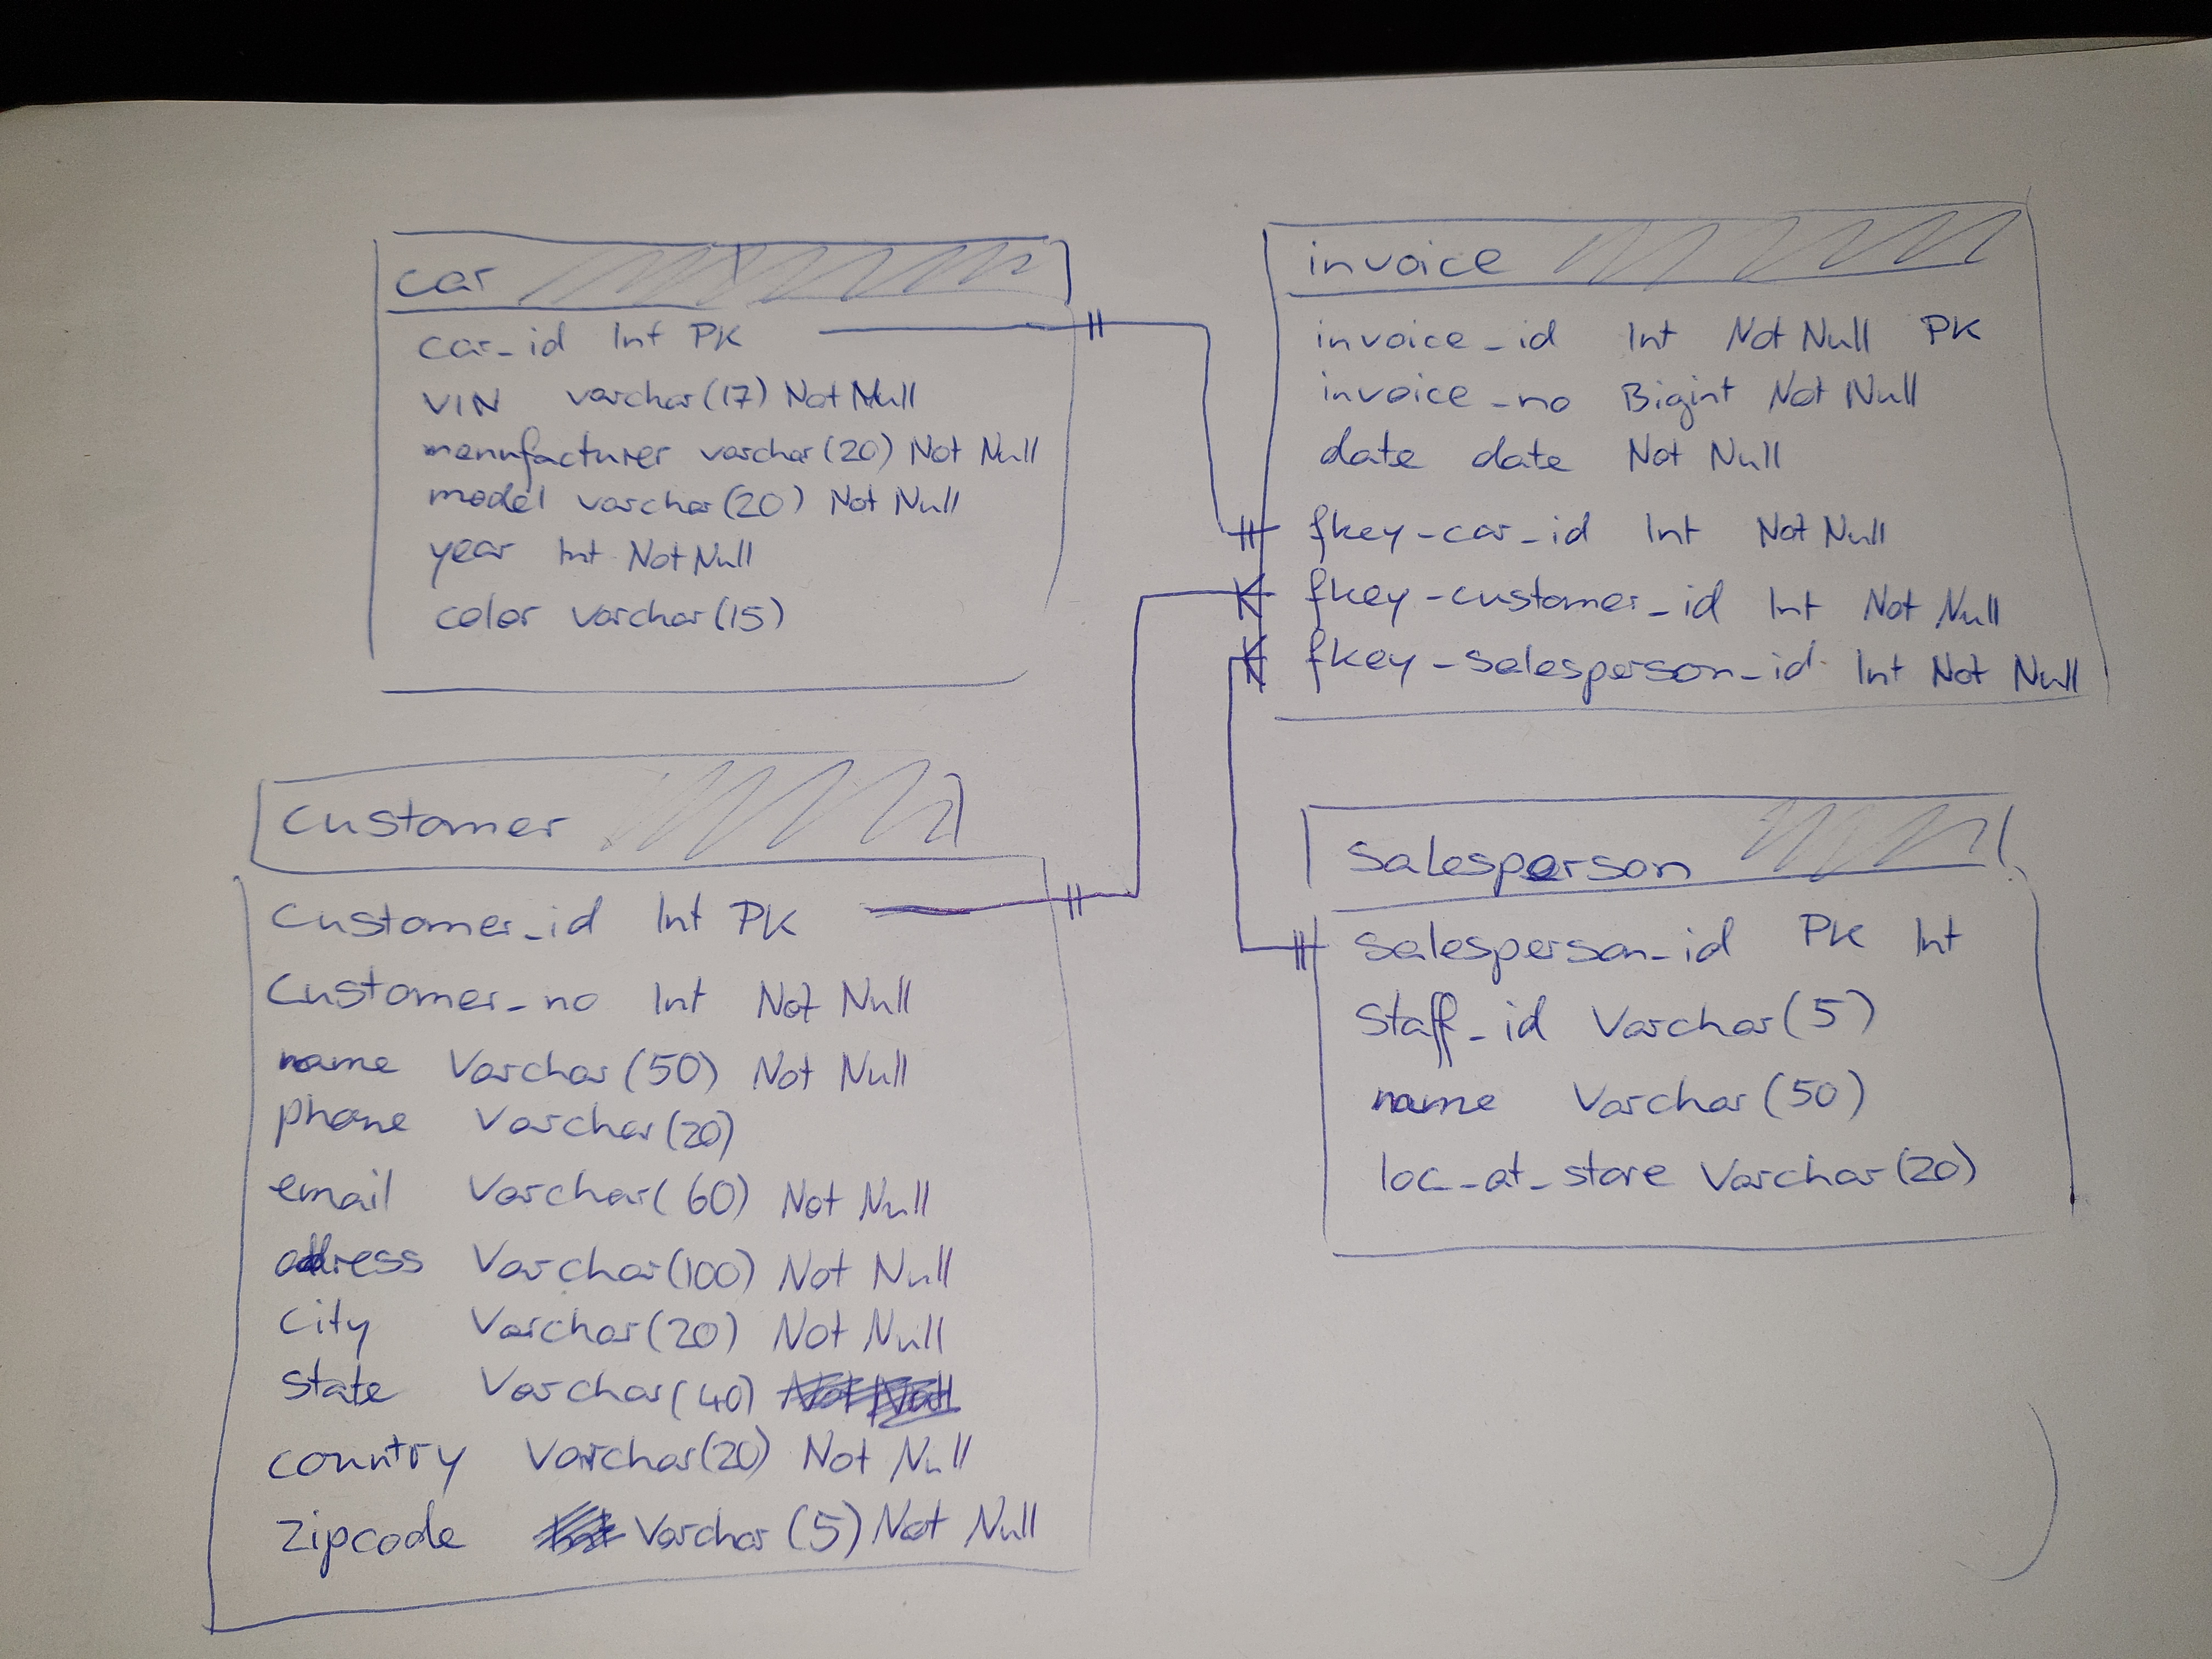 car
car_id Int PK
VIN varchar(17) Not Null
mennfacturer varchar(20) Not Null
model varchar(20) Not Null
year Int Not Null
color varchar(15)
invoice
invoice_id Int Not Null PK
invoice_no Bigint Not Null
date date Not Null
fkey-car_id Int Not Null
fkey-customer_id Int Not Null
fkey-salesperson_id Int Not Null
Customer
Customer_id Int PK
Customer_no Int Not Null
name Varchar(50) Not Null
phone Varchar(20)
email Varchar(60) Not Null
adress Varchar(100) Not Null
City Varchar(20) Not Null
State Varchar(40) Not Null
country Varchar(20) Not Null
Zipcode Varchar(5) Not Null
Salesperson
Salesperson_id PK Int
Staff_id Varchar(5)
name Varchar(50)
loc_at_store Varchar(20)